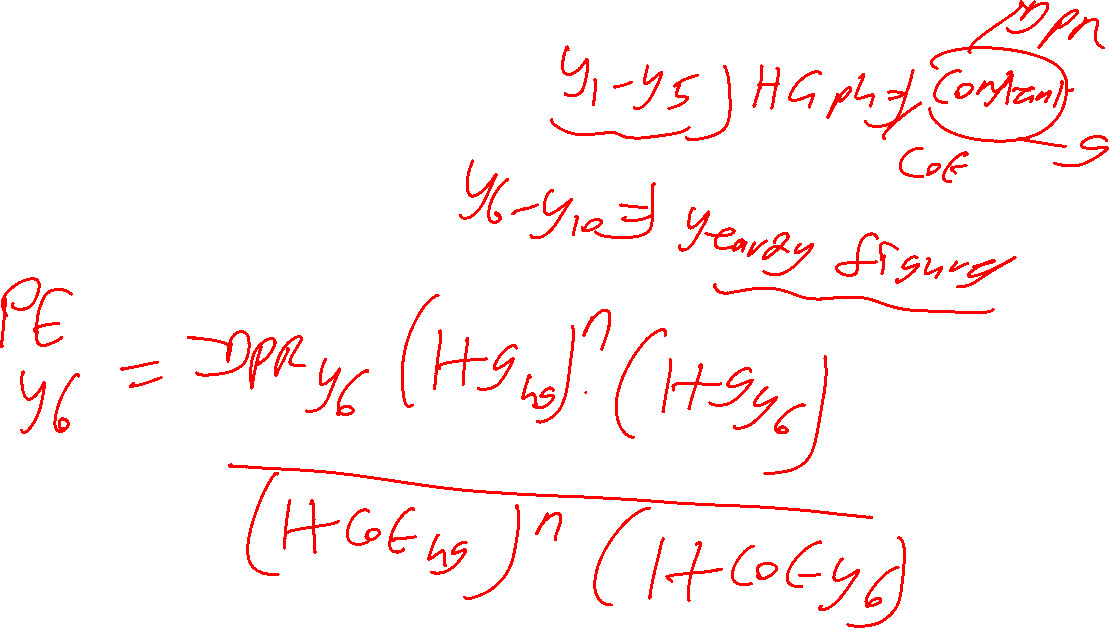 DPR
y1-y5) HG ph ⇒ Constant
COE g
y6-y10 ⇒ yearly figure
PE y6 = DPR y6 (1+g hg)^n . (1+g y6)
(1+COE hg)^n (1+COE y6)